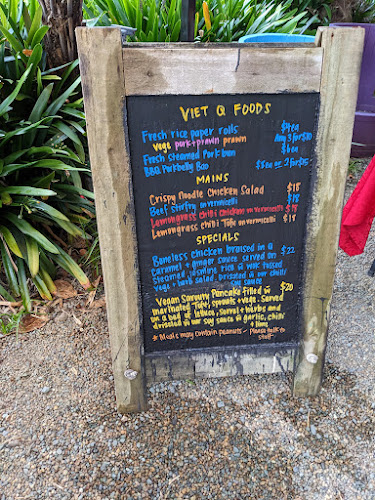 VIET Q FOODS
Fresh rice paper rolls $4ea
vege pork+prawn prawn Any 3 for $10
Fresh Steamed Pork bun $6ea
BBQ Porkbelly Bao $8ea or 2 for $15
MAINS
Crispy Noodle Chicken Salad $18
Beef Stirfry on vermicelli $18
Lemongrass chilli chicken on vermicelli $18
Lemongrass chilli Tofu on vermicelli $17
SPECIALS
Boneless chicken braised in a $22
caramel + ginger sauce served on
Steamed jasmine rice a wok tossed
vege + herb salad. Drizzled in our chilli
soy sauce
Vegan Savoury Pancake filled in $20
marinated Tofu, sprouts + vege. Served
on a bed of lettuce, sorrel + herbs and
drizzled in our soy sauce garlic, chilli
+ lime
* Meals may contain peanuts - Please talk to
staff